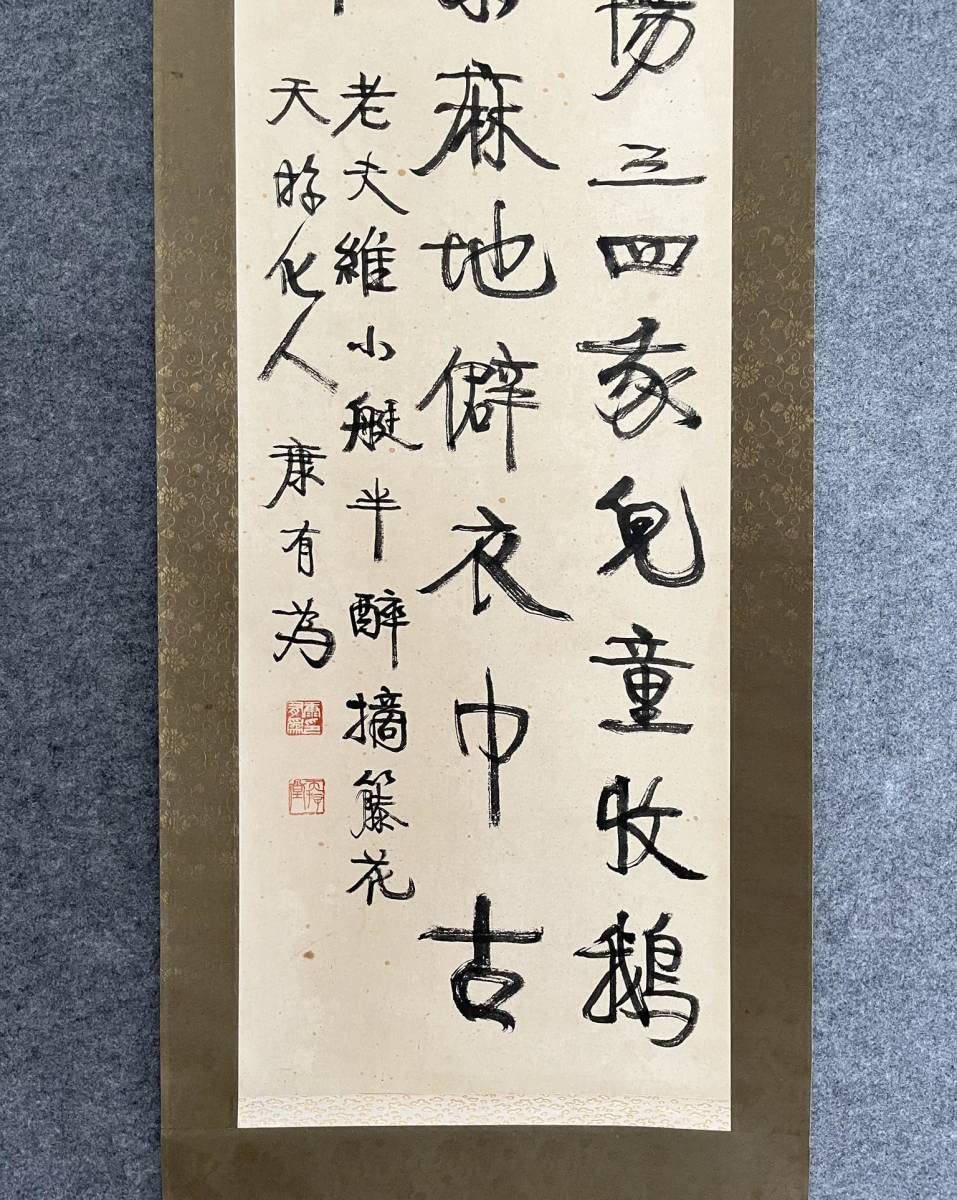 陽三四家兒童牧鵝
麻地僻衣巾古
老夫維小艇半醉摘籐花
天游化人 康有為